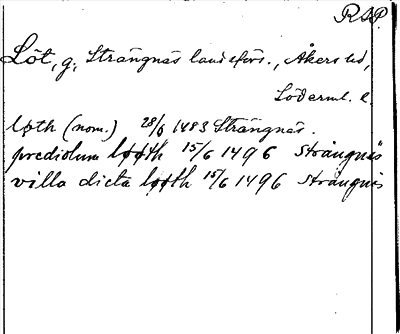 RAP.
Löt, g., Strängnäs landsförs., Åkers hd,
Söderml. l.
løth (nom.) 28/6 1483 Strängnäs.
prediolum løøth 15/6 1496 Strängnäs
villa dicta løøth 15/6 1496 Strängnäs